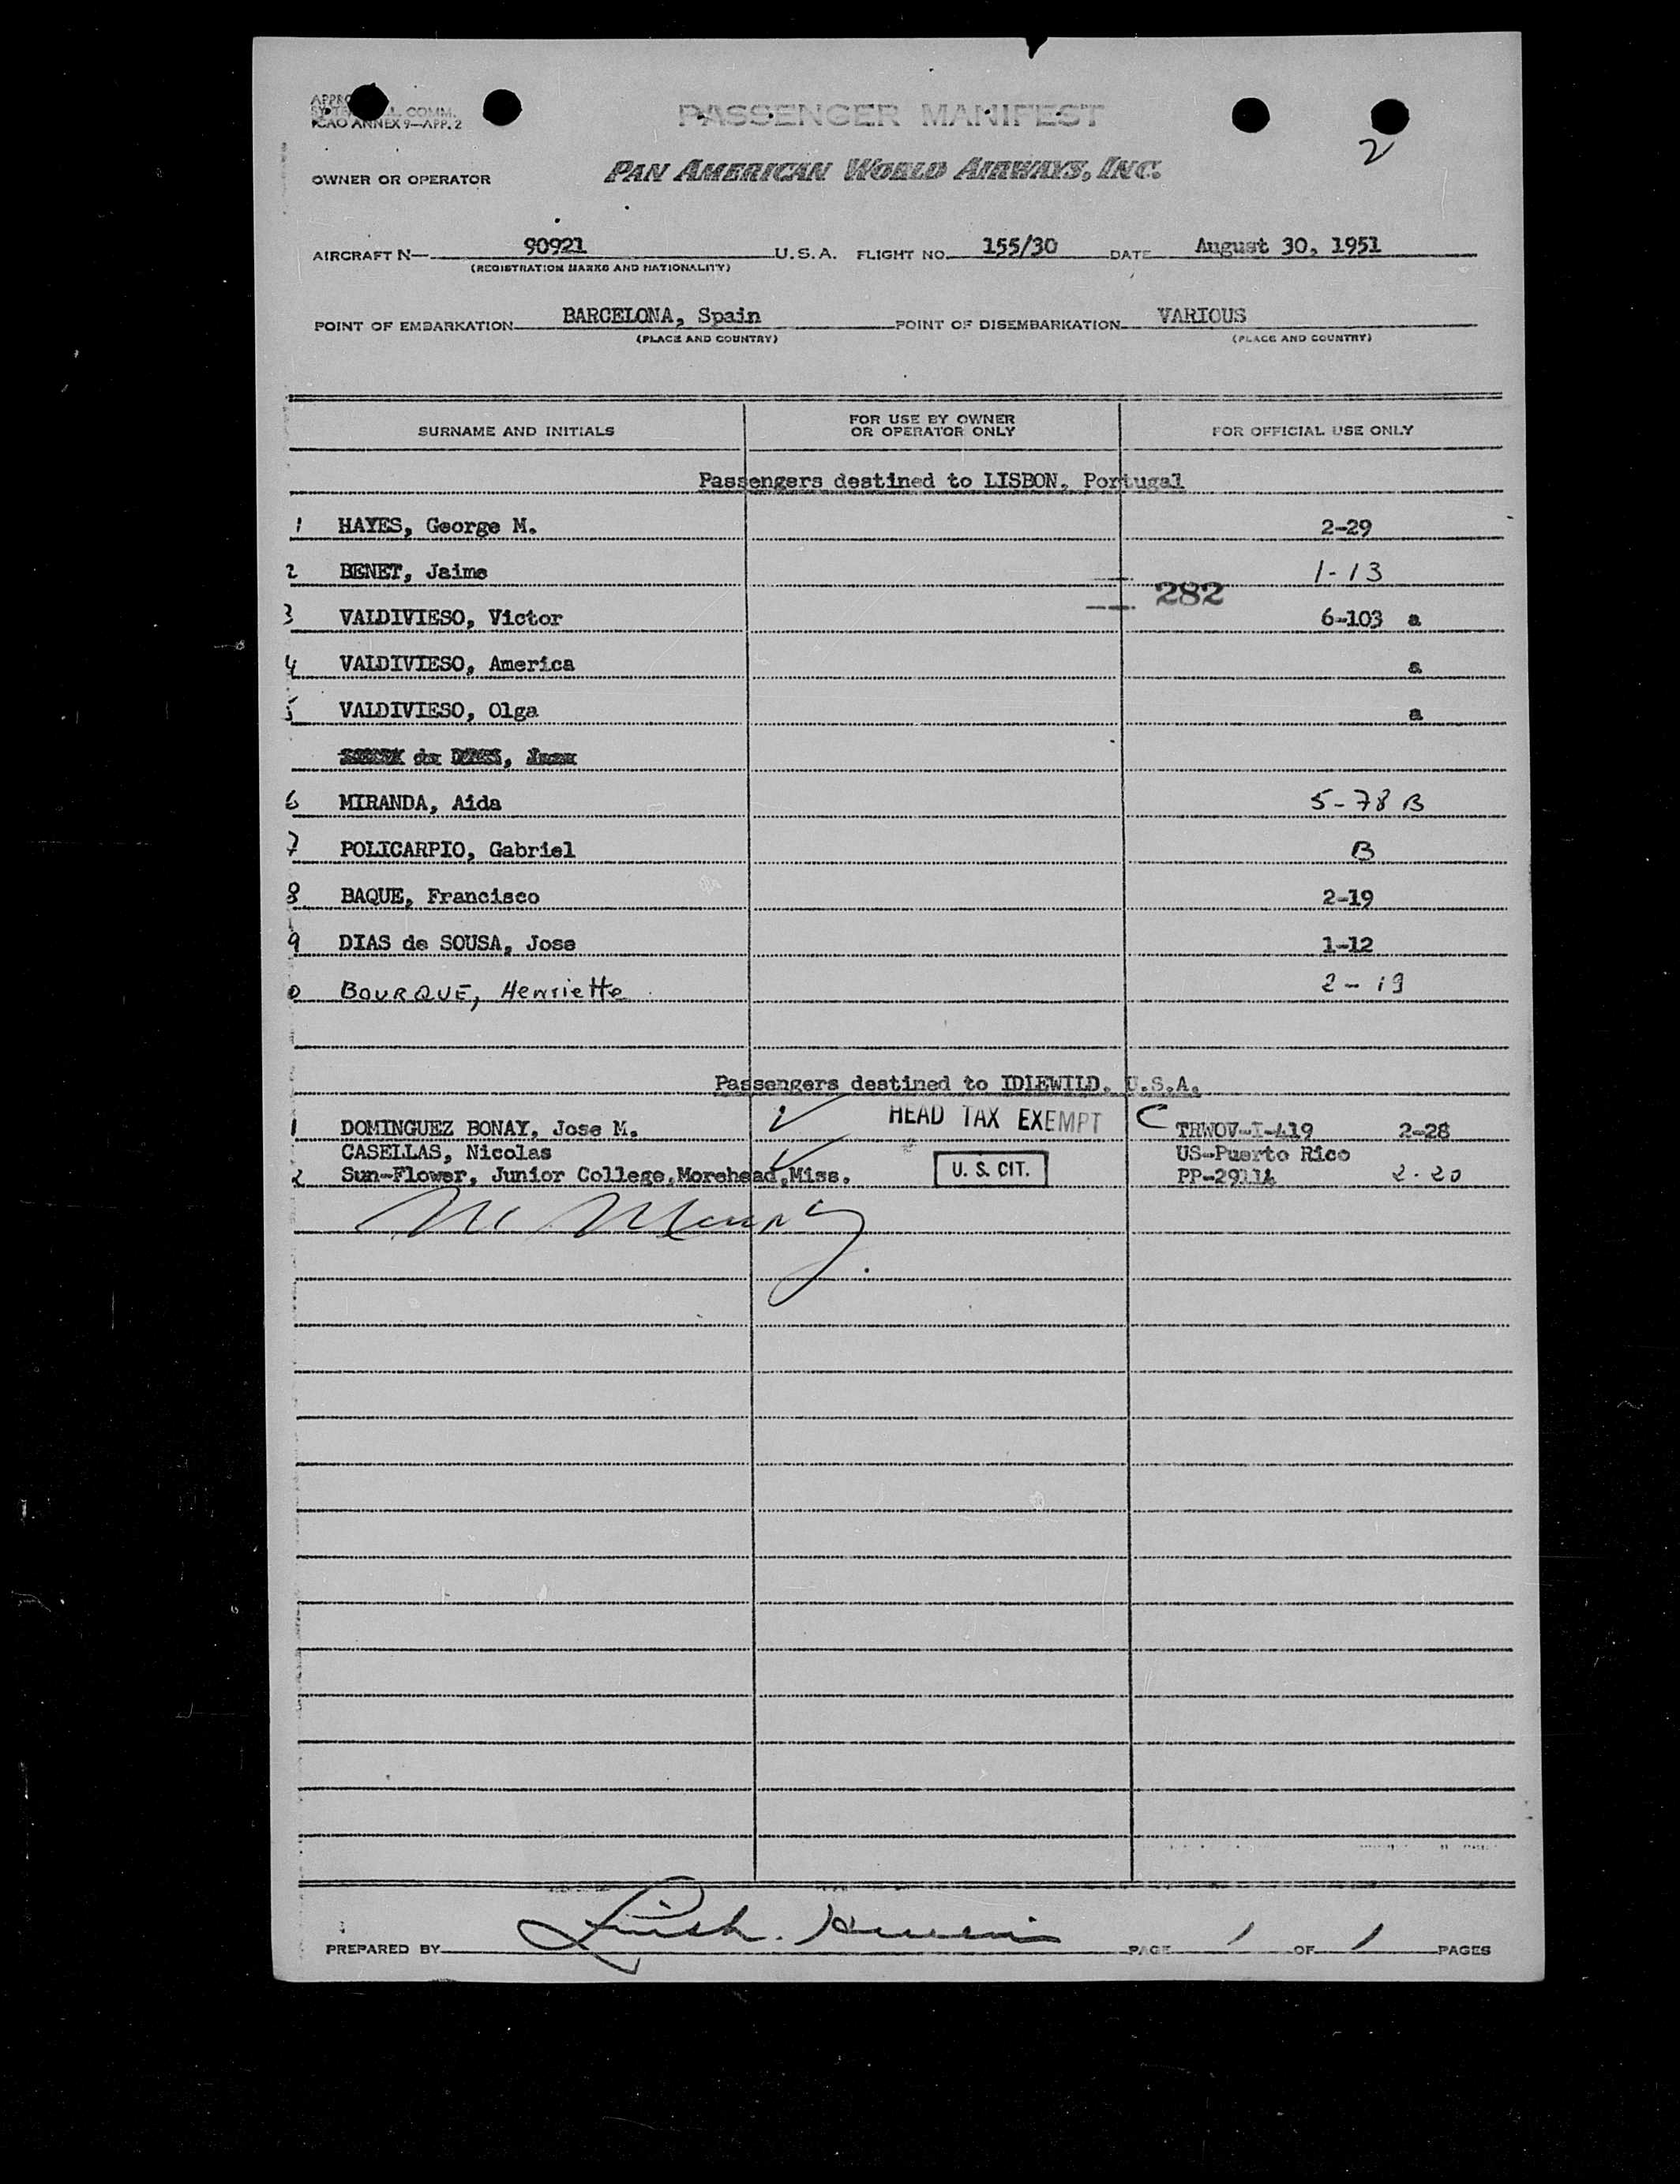 PASSENGER MANIFEST
COMM.
ICAO ANNEX 9—APP. 2
2
OWNER OR OPERATOR PAN AMERICAN WORLD AIRWAYS, INC.
AIRCRAFT N— 90921 U.S.A. FLIGHT NO. 155/30 DATE August 30, 1951
(REGISTRATION MARKS AND NATIONALITY)
POINT OF EMBARKATION BARCELONA, Spain POINT OF DISEMBARKATION VARIOUS
(PLACE AND COUNTRY) (PLACE AND COUNTRY)
SURNAME AND INITIALS FOR USE BY OWNER OR OPERATOR ONLY FOR OFFICIAL USE ONLY
Passengers destined to LISBON, Portugal
1 HAYES, George M. 2-29
2 BENET, Jaime 1-13
282
3 VALDIVIESO, Victor 6-103 a
4 VALDIVIESO, America a
5 VALDIVIESO, Olga a
6 MIRANDA, Aida 5-78 B
7 POLICARPIO, Gabriel B
8 BAQUE, Francisco 2-19
9 DIAS de SOUSA, Jose 1-12
0 BOURQUE, Henriette 2-19
Passengers destined to IDLEWILD, U.S.A.
HEAD TAX EXEMPT C
1 DOMINGUEZ BONAY, Jose M. TRWOV-I-419 2-28
CASELLAS, Nicolas US-Puerto Rico
2 Sun-Flower, Junior College,Morehead,Miss. U. S. CIT. PP-29114 2-20
PREPARED BY PAGE 1 OF 1 PAGES